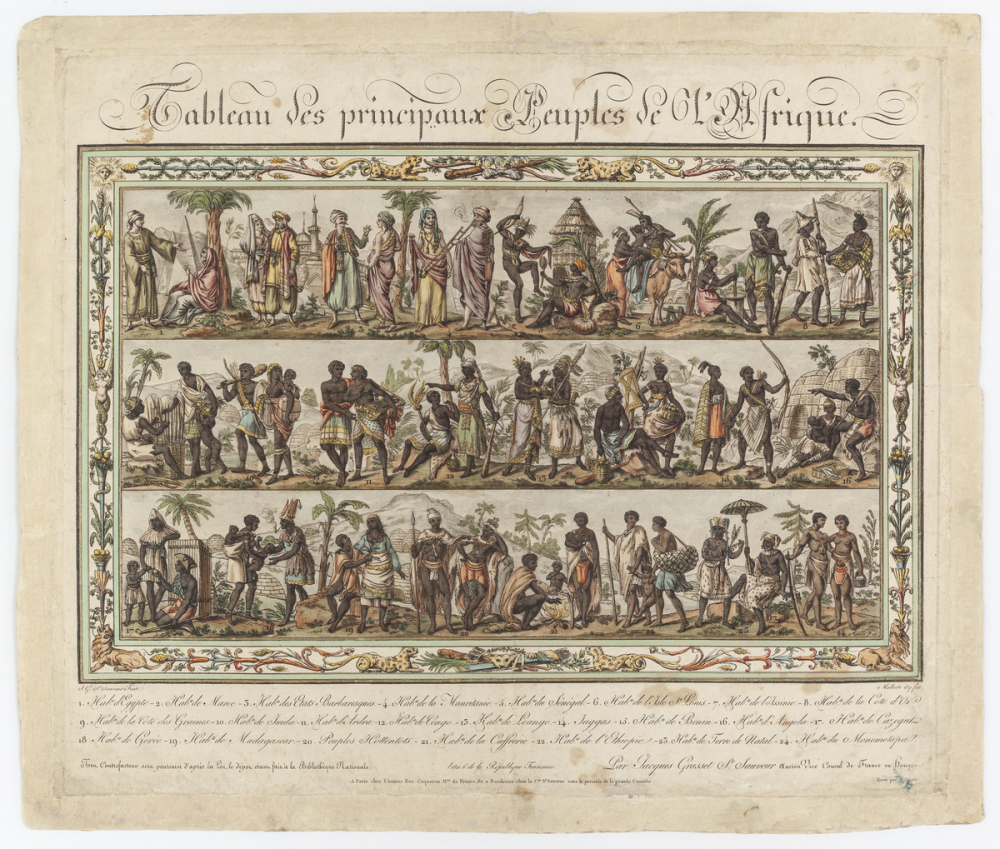 Tableau des principaux Peuples de l'Afrique.
J. Gt. St. Sauveur
1. Habt. d'Egypte - 2. Habt. de Maroc - 3. Habt. des Etats Barbaresques - 4. Habt. de la Mauritanie - 5. Habt. du Sénégal - 6. Habt. de l'Isle St. Louis - 7. Habt. de l'Issinie - 8. Habt. de la Côte d'Or
9. Habt. de la Côte des Graines - 10. Habt. de Juda - 11. Habt. d'Ardra - 12. Habt. du Congo - 13. Habt. de Loango - 14. Jagges - 15. Habt. de Benin - 16. Habt. d'Angola - 17. Habt. de
18. Habt. de Gorée - 19. Habt. de Madagascar - 20. Peuples Hottentots - 21. Habt. de la Caffrerie - 22. Habt. de l'Ethiopie - 23. Habt. de Terre de Natal - 24. Habt. du Monomotapa
Tout Contrefacteur sera poursuivi d'après la Loi, le dépôt étant fait à la Bibliothèque Nationale. L'an 6e. de la République Française Par Jacques Grasset St. Sauveur Ancien Vice Consul de France en Hongrie
A Paris chez l'Auteur Rue Coquéron Mon. de France, Et a Bordeaux chez la Cne. St. Sauveur sous le peristile de la grande Comédie.